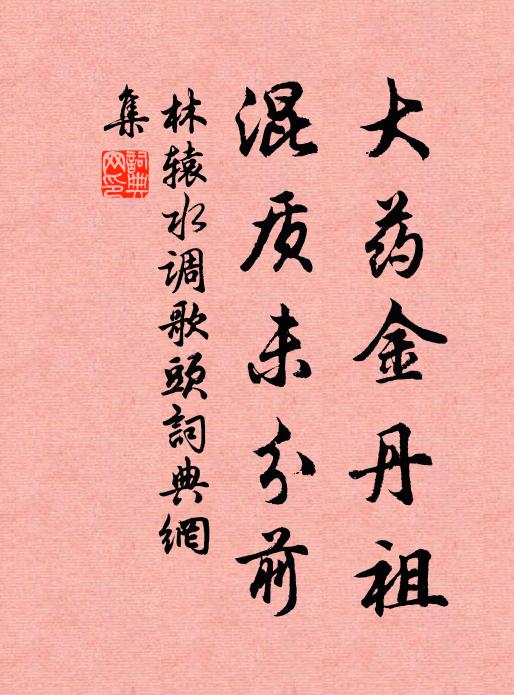 大药金丹祖
混质未分前
林辕水调歌头詞典網
集
詞典
网印